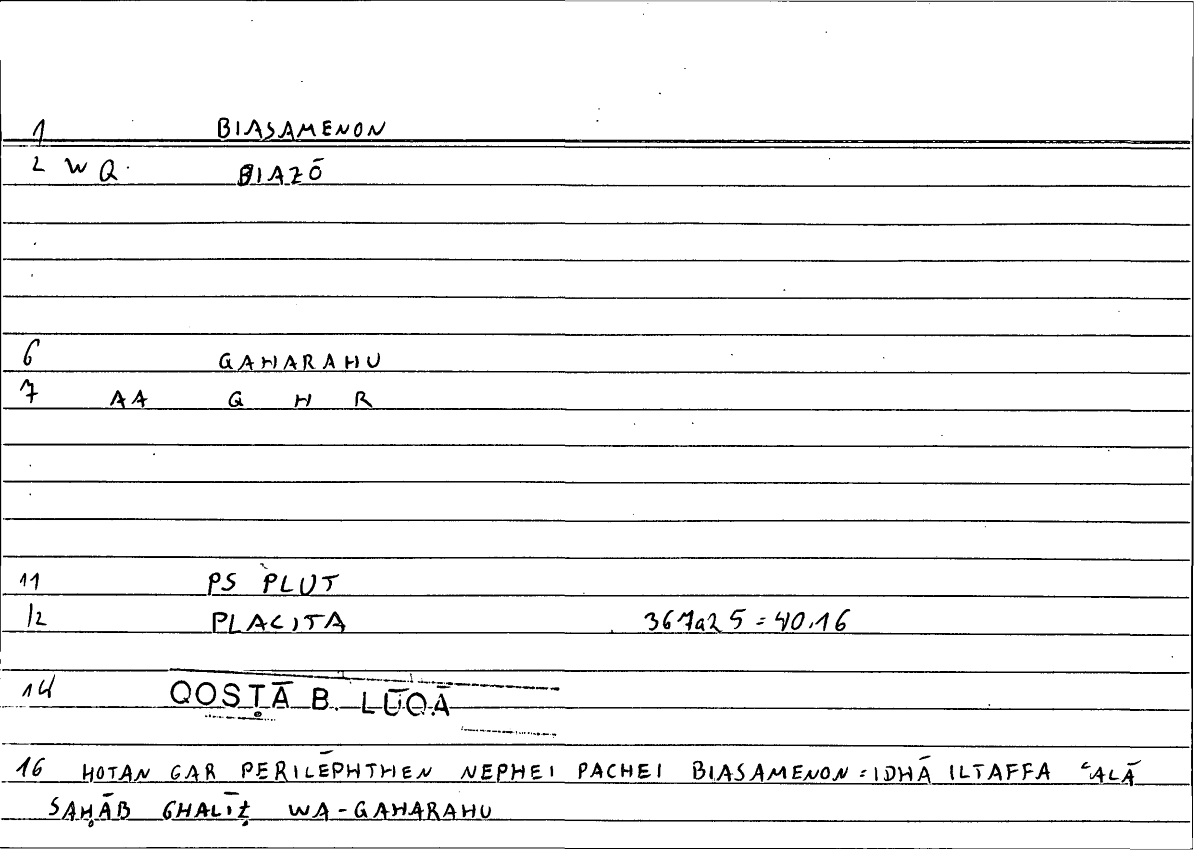 1 BIASAMENON
2 W Q. BIAZŌ
6 QAHARAHU
7 AA Q H R
11 PS PLUT
12 PLACITA 367a25 = 40.16
14 QOSṬĀ B. LŪQĀ
16 HOTAN GAR PERILĒPHTHEN NEPHEI PACHEI BIASAMENON = IDHĀ ILTAFFA ʿALĀ
SAḤĀB GHALĪẒ WA-QAHARAHU